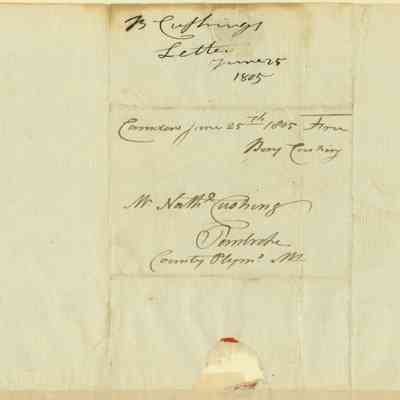 B Cushings
Letter
June 25
1805
Camden June 25th 1805 Free
Benj Cushing
Mr Nathl Cushing
Pembroke
County Plymo Ms